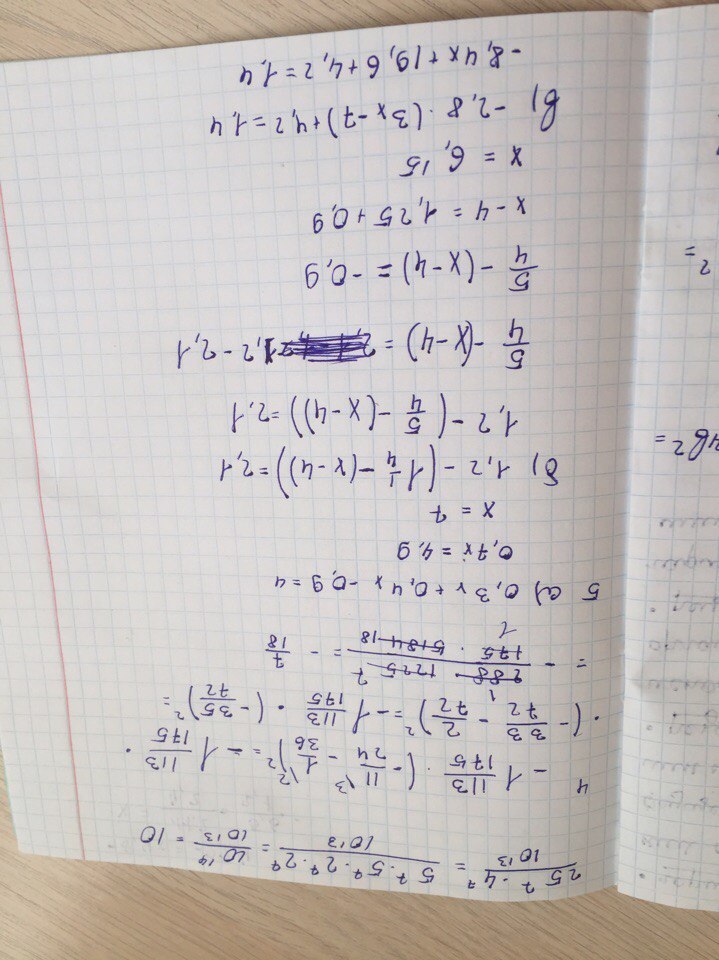 25⁷ · 4⁷ / 10¹³ = 5⁷ · 5⁷ · 2⁷ · 2⁷ / 10¹³ = 10¹⁴ / 10¹³ = 10
4 - 1 113/175 · (- 11/24 \3 - 1/36 \2)² = - 1 113/175 ·
· (- 33/72 - 2/72)² = - 1 113/175 · (- 35/72)² =
= - 288 1 · 1225 7 / 175 1 · 5184 18 = - 7/18
5 а) 0,3x + 0,4x - 0,9 = 4
0,7x = 4,9
x = 7
б) 1,2 - (1 1/4 - (x - 4)) = 2,1
1,2 - (5/4 - (x - 4)) = 2,1
5/4 - (x - 4) = 1,2 - 2,1
5/4 - (x - 4) = -0,9
x - 4 = 1,25 + 0,9
x = 6,15
в) -2,8 · (3x - 7) + 4,2 = 1,4
-8,4x + 19,6 + 4,2 = 1,4